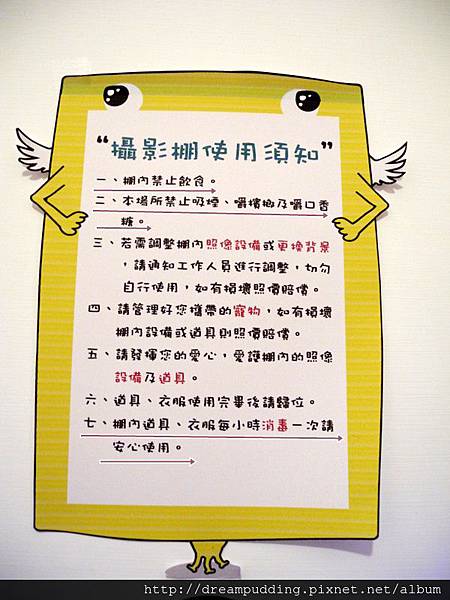 “攝影棚使用須知”
一、棚內禁止飲食。
二、本場所禁止吸煙、嚼檳榔及嚼口香
糖。
三、若需調整棚內照像設備或更換背景
，請通知工作人員進行調整，切勿
自行使用，如有損壞照價賠償。
四、請管理好您攜帶的寵物，如有損壞
棚內設備或道具則照價賠償。
五、請發揮您的愛心，愛護棚內的照像
設備及道具。
六、道具、衣服使用完畢後請歸位。
七、棚內道具、衣服每小時消毒一次請
安心使用。
http://dreampudding.pixnet.net/album